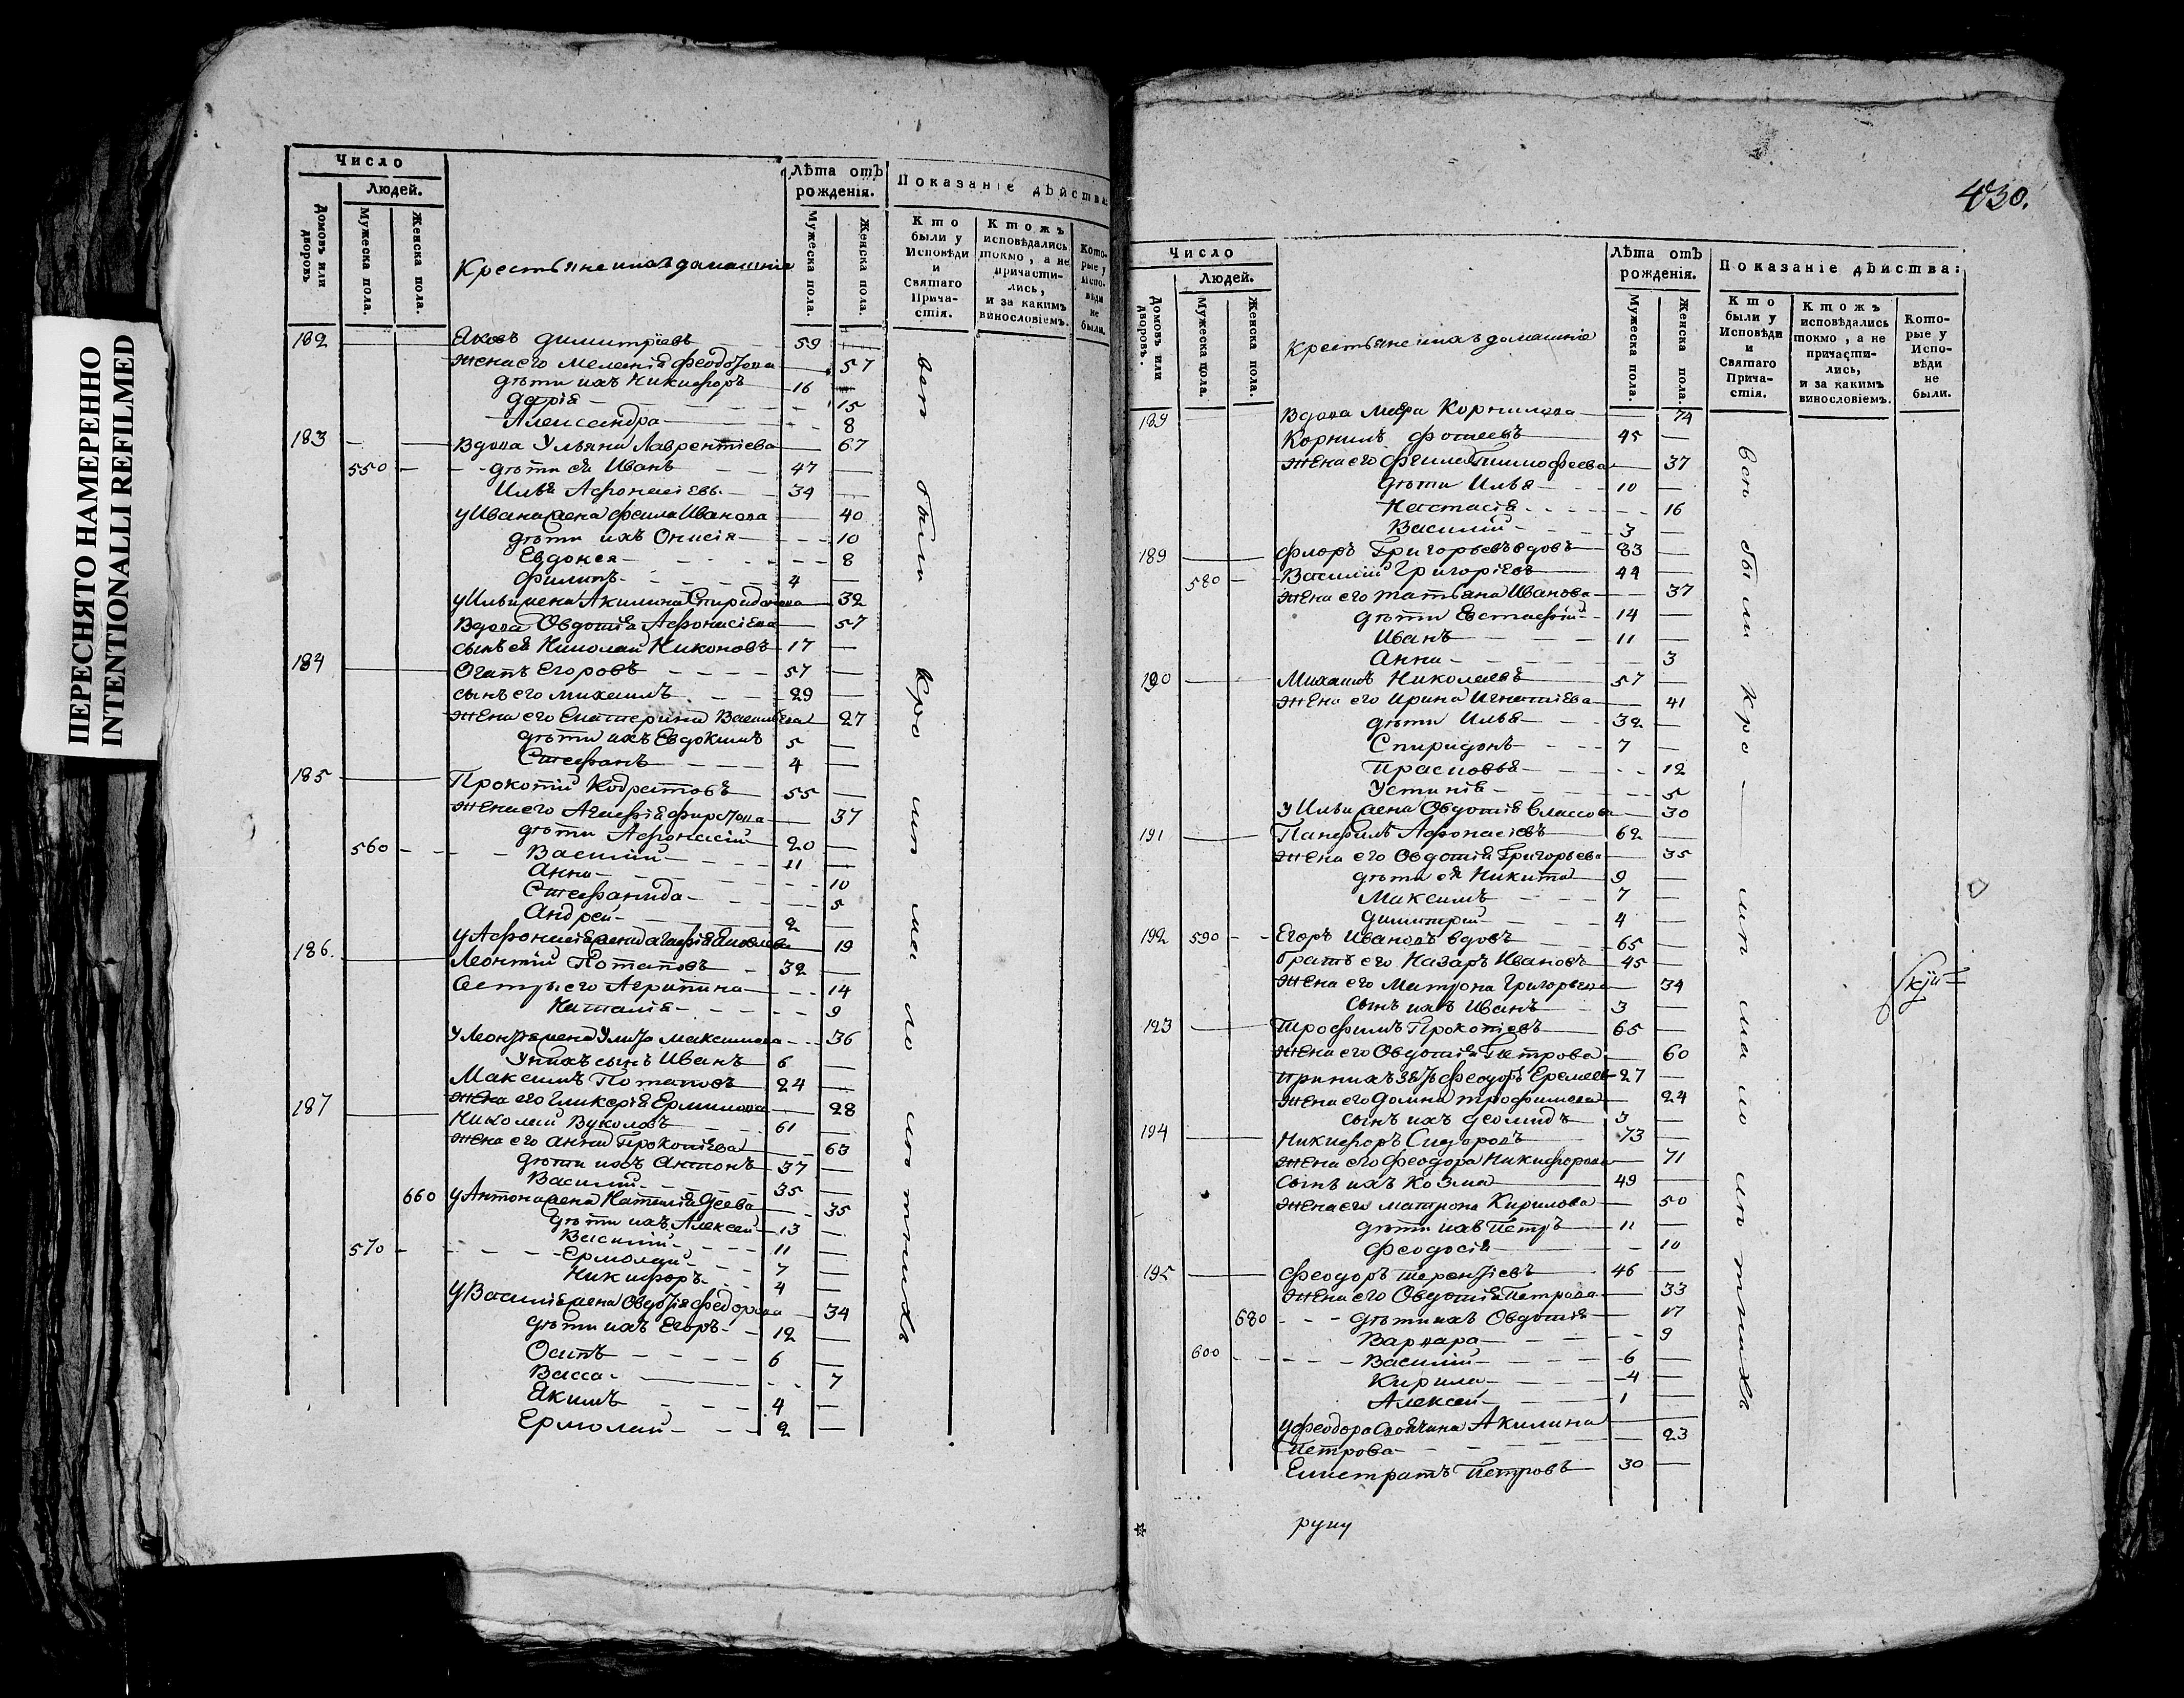 ПЕРЕСНЯТО НАМЕРЕННО
INTENTIONALLI REFILMED
Число
Людей.
Домовъ или дворовъ
Мужеска пола.
Женска пола.
Крестьяне и ихъ домашніе
Лѣта отъ рожденія.
Мужеска пола.
Женска пола.
Показаніе дѣйства:
Кто были у Исповѣди и Святаго Причастія.
Ктожъ исповѣдались токмо, а не причастились, и за какимъ винословіемъ.
Которые у Исповѣди не были.
182 Яковъ Димитріевъ 59
Жена его Меланія Феодотова 57
дѣти ихъ Никифоръ 16
Дарія 15
Александра 8
183 Вдова Ульяна Лаврентіева 67
550 дѣти ея Иванъ 47
Илья Афонасіевы 34
у Ивана жена Фекла Иванова 40
дѣти ихъ Онисія 10
Евдокея 8
Филипъ 4
у Ильи жена Акилина Спиридонова 32
Вдова Овдотія Афонасіева 57
сынъ ея Николай Никоновъ 17
184 Огапъ Егоровъ 57
сынъ его Михаилъ 29
Жена его Екатерина Васильева 27
дѣти ихъ Евдокимъ 5
Стефанъ 4
185 Прокопій Кодратовъ 55
Жена его Агафія Фирсова 37
дѣти Афонасій 20
560 Василій 11
Анна 10
Стефанида 5
Андрей 2
у Афонасія жена Агафія Яковлева 19
186. Леонтій Потаповъ 32
Сестры его Агрипина 14
Наталія 9
у Леонтія жена Улита Максимова 36
У нихъ сынъ Иванъ 6
Максимъ Потаповъ 24
Жена его Гликерія Ермилова 28
187 Николай Вуколовъ 61
Жена его Анна Прокопіева 63
дѣти ихъ Антонъ 37
Василій 35
660 у Антона жена Наталія 35
дѣти ихъ Алексей 13
Василій 11
570 Ермолай 7
Никифоръ 4
у Василія жена Овдотія Федорова 34
дѣти ихъ Егоръ 12
Осипъ 6
Васса 7
Якимъ 4
Ермолай 2
всѣ были кро мѣ ма ло лѣ тнихъ
430.
Число
Людей.
Домовъ или дворовъ.
Мужеска пола.
Женска пола.
Крестьяне и ихъ домашніе
Лѣта отъ рожденія.
Мужеска пола.
Женска пола.
Показаніе дѣйства:
Кто были у Исповѣди и Святаго Причастія.
Ктожъ исповѣдались токмо, а не причастились, и за какимъ винословіемъ.
Которые у Исповѣди не были.
189 Вдова Мавра Корнилова 74
Корнилъ Фотеевъ 45
Жена его Фекла Тимофеева 37
дѣти Илья 10
Настасія 16
Василій 3
189 Флоръ Григорьевъ вдовъ 83
580 Василій Григоріевъ 44
Жена его Татьяна Иванова 37
дѣти Евстафій 14
Иванъ 11
Анна 3
190 Михаилъ Николаевъ 57
Жена его Ирина Игнатіева 41
дѣти Илья 32
Спиридонъ 7
Прасковья 12
Устинія 5
У Ильи жена Овдотія Власова 30
191 Панфилъ Афонасіевъ 62
Жена его Овдотія Григорьева 35
дѣти ея Никита 9
Максимъ 7
Димитрій 4
192 590 Егоръ Ивановъ вдовъ 65
братъ его Назаръ Ивановъ 45
Жена его Матрона Григорьева 34
сынъ ихъ Иванъ 3
193 Трофимъ Прокопіевъ 65
Жена его Овдотія Петрова 60
при нихъ зять Феодоръ Еремеевъ 27
Жена его Домна Трофимова 24
сынъ ихъ 3
194 Никифоръ Сидоровъ 73
Жена его Феодора Никифорова 71
Сынъ ихъ Козма 49
Жена его Матрона Кирилова 50
дѣти ихъ Петръ 11
Феодосія 10
195 Феодоръ Терентіевъ 46
Жена его Овдотія Петрова 33
680 дѣти ихъ Овдотія 17
Варвара 9
600 Василій 6
Кирила 4
Алексей 1
у Феодора Акилина
Петрова 23
Елистратъ Петровъ 30
всѣ были кро мѣ ма ло лѣ тнихъ
руку